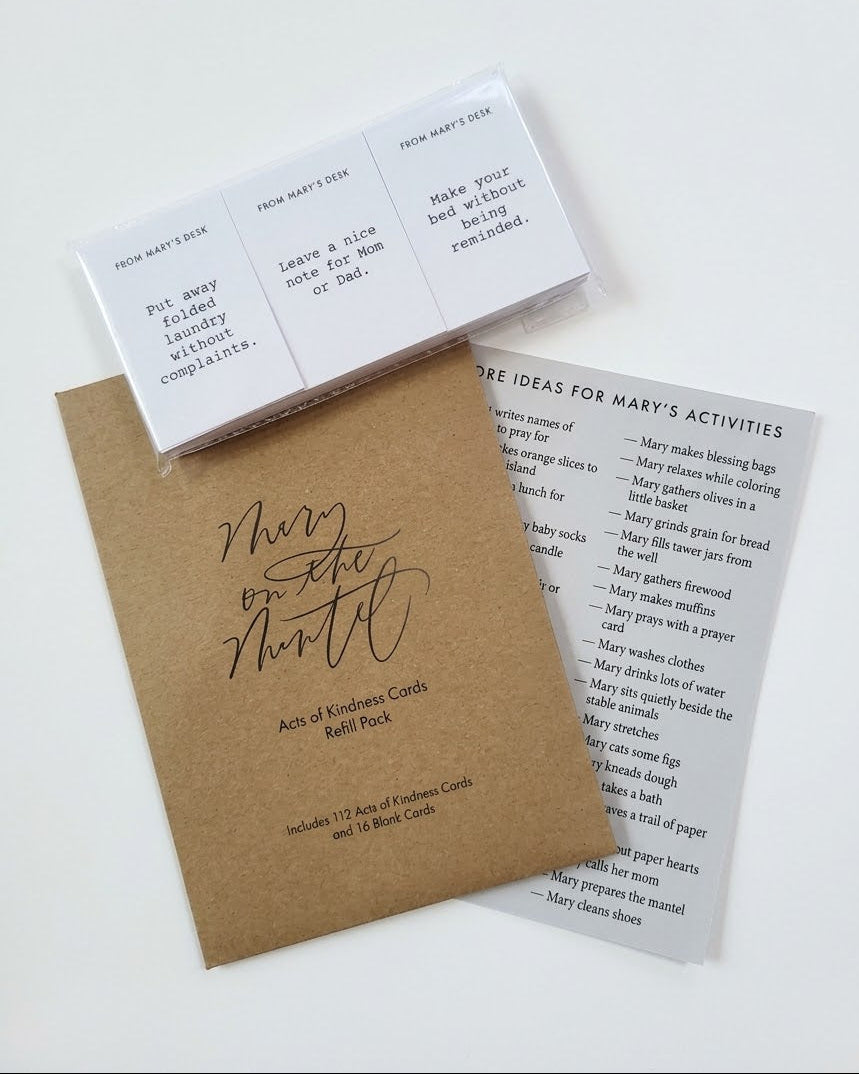 FROM MARY'S DESK
Put away
folded
laundry
without
complaints.
FROM MARY'S DESK
Leave a nice
note for Mom
or Dad.
FROM MARY'S DESK
Make your
bed without
being
reminded.
Mary
on the
Mantel
Acts of Kindness Cards
Refill Pack
Includes 112 Acts of Kindness Cards
and 16 Blank Cards
IDEAS FOR MARY'S ACTIVITIES
writes names of
to pray for
orange slices to
island
lunch for
baby socks
candle
or
— Mary makes blessing bags
— Mary relaxes while coloring
— Mary gathers olives in a
little basket
— Mary grinds grain for bread
— Mary fills tawer jars from
the well
— Mary gathers firewood
— Mary makes muffins
— Mary prays with a prayer
card
— Mary washes clothes
— Mary drinks lots of water
— Mary sits quietly beside the
stable animals
Mary stretches
Mary cats some figs
kneads dough
takes a bath
a trail of paper
out paper hearts
calls her mom
— Mary prepares the mantel
— Mary cleans shoes